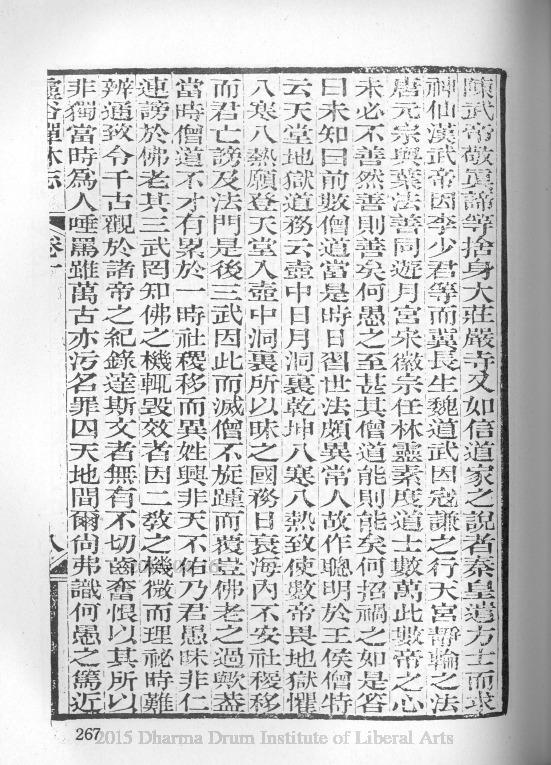 陳武帝敬真諦等捨身大莊嚴寺又如信道家之說者秦皇遣方士而求
神仙漢武帝因李少君等而冀長生魏道武因寇謙之行天宮靜輪之法
唐元宗與葉法善同遊月宮宋徽宗任林靈素度道士數萬此數帝之心
未必不善然善則善矣何愚之至甚其僧道能則能矣何招禍之如是答
曰未知曰前數僧道當是時日習世法頗異常人故作聰明於王侯僧特
云天堂地獄道務云壺中日月洞裏乾坤八寒八熱致使數帝畏地獄懼
八寒八熱願登天堂入壺中洞裏所以昧之國務日衰海內不安社稷移
而君亡謗及法門是後三武因此而滅僧不旋踵而覆豈佛老之過歟蓋
當時僧道不才有累於一時社稷移而異姓興非天不佑乃君愚昧非仁
連謗於佛老其三武罔知佛之機輒毀效者因二教之機微而理祕時難
辨通致令千古觀於諸帝之紀錄達斯文者無有不切齒奮恨以其所以
非獨當時為人唾罵雖萬古亦污名罪囚天地間爾尚弗識何愚之篤近
靈谷禪林志
卷一
八
267
2015 Dharma Drum Institute of Liberal Arts